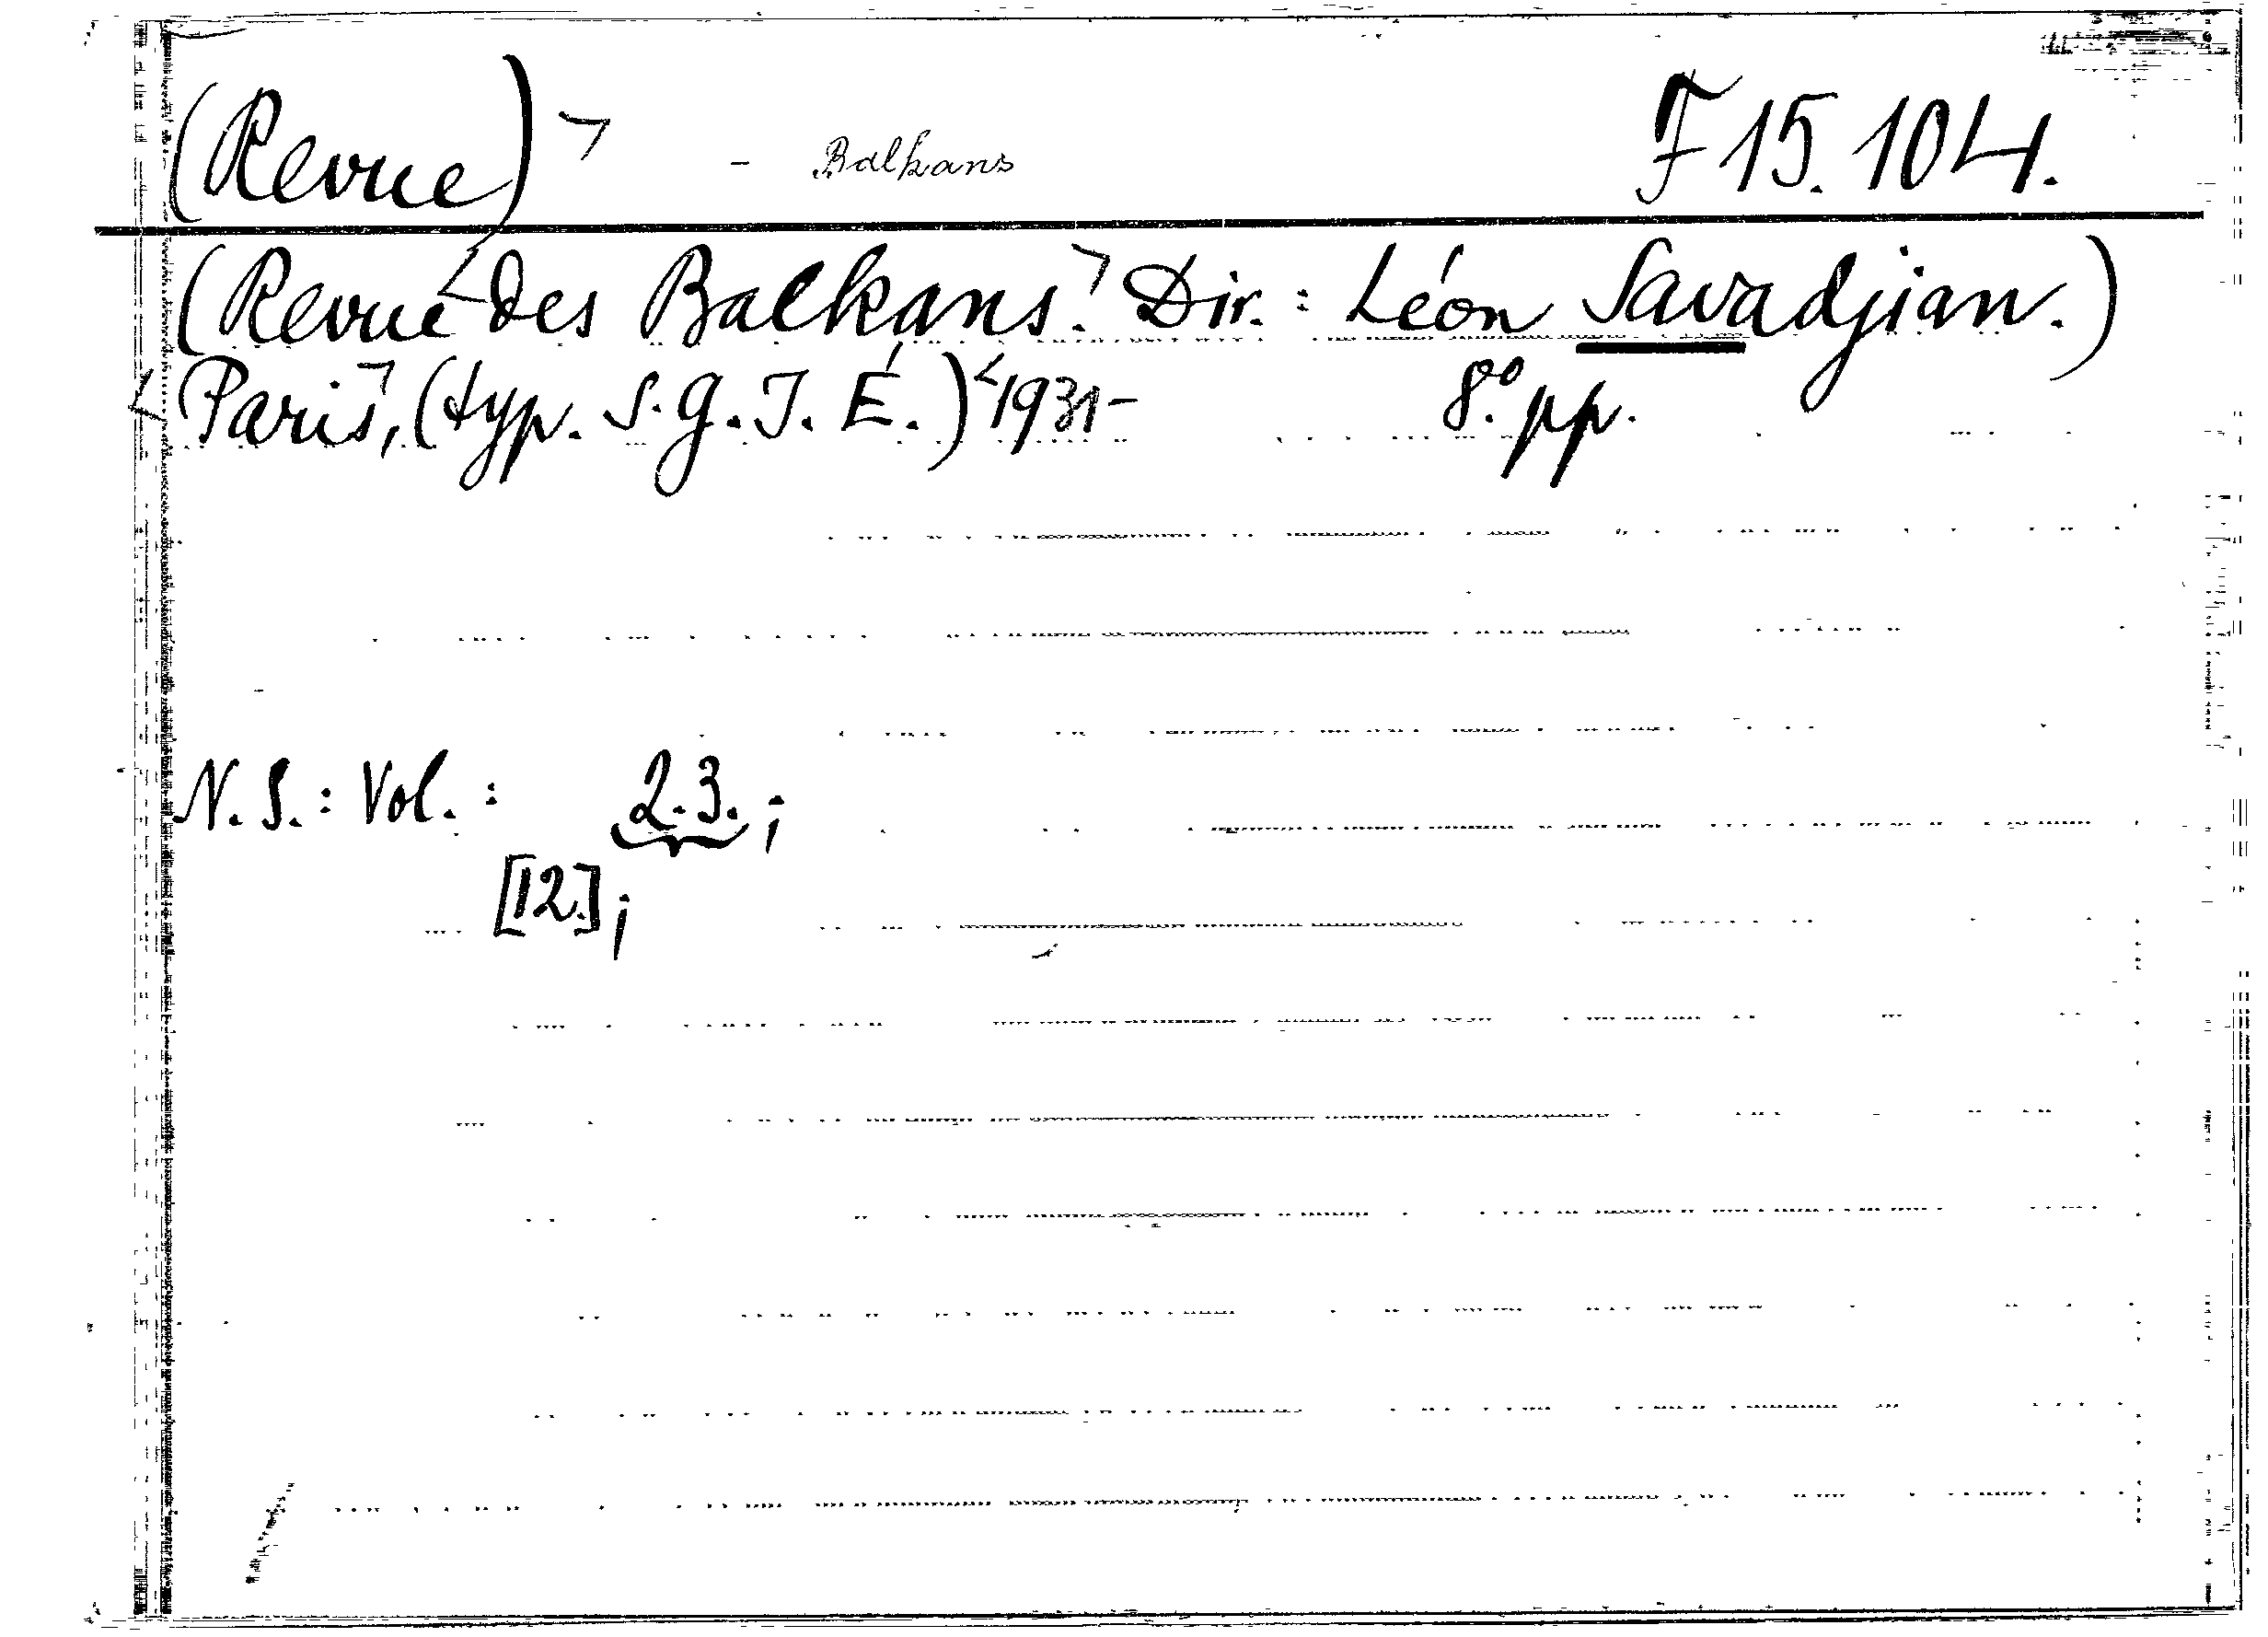 (Revue)⌝ - Balkans F 15.104.
(Revue ⌞des Balkans.⌝ Dir.: Léon Savadjian.)
⌞Paris⌝, (typ. S.G.I.É.) ⌞1931- 8.º pp.
N.S.: Vol.: 2.3.;
[12.];